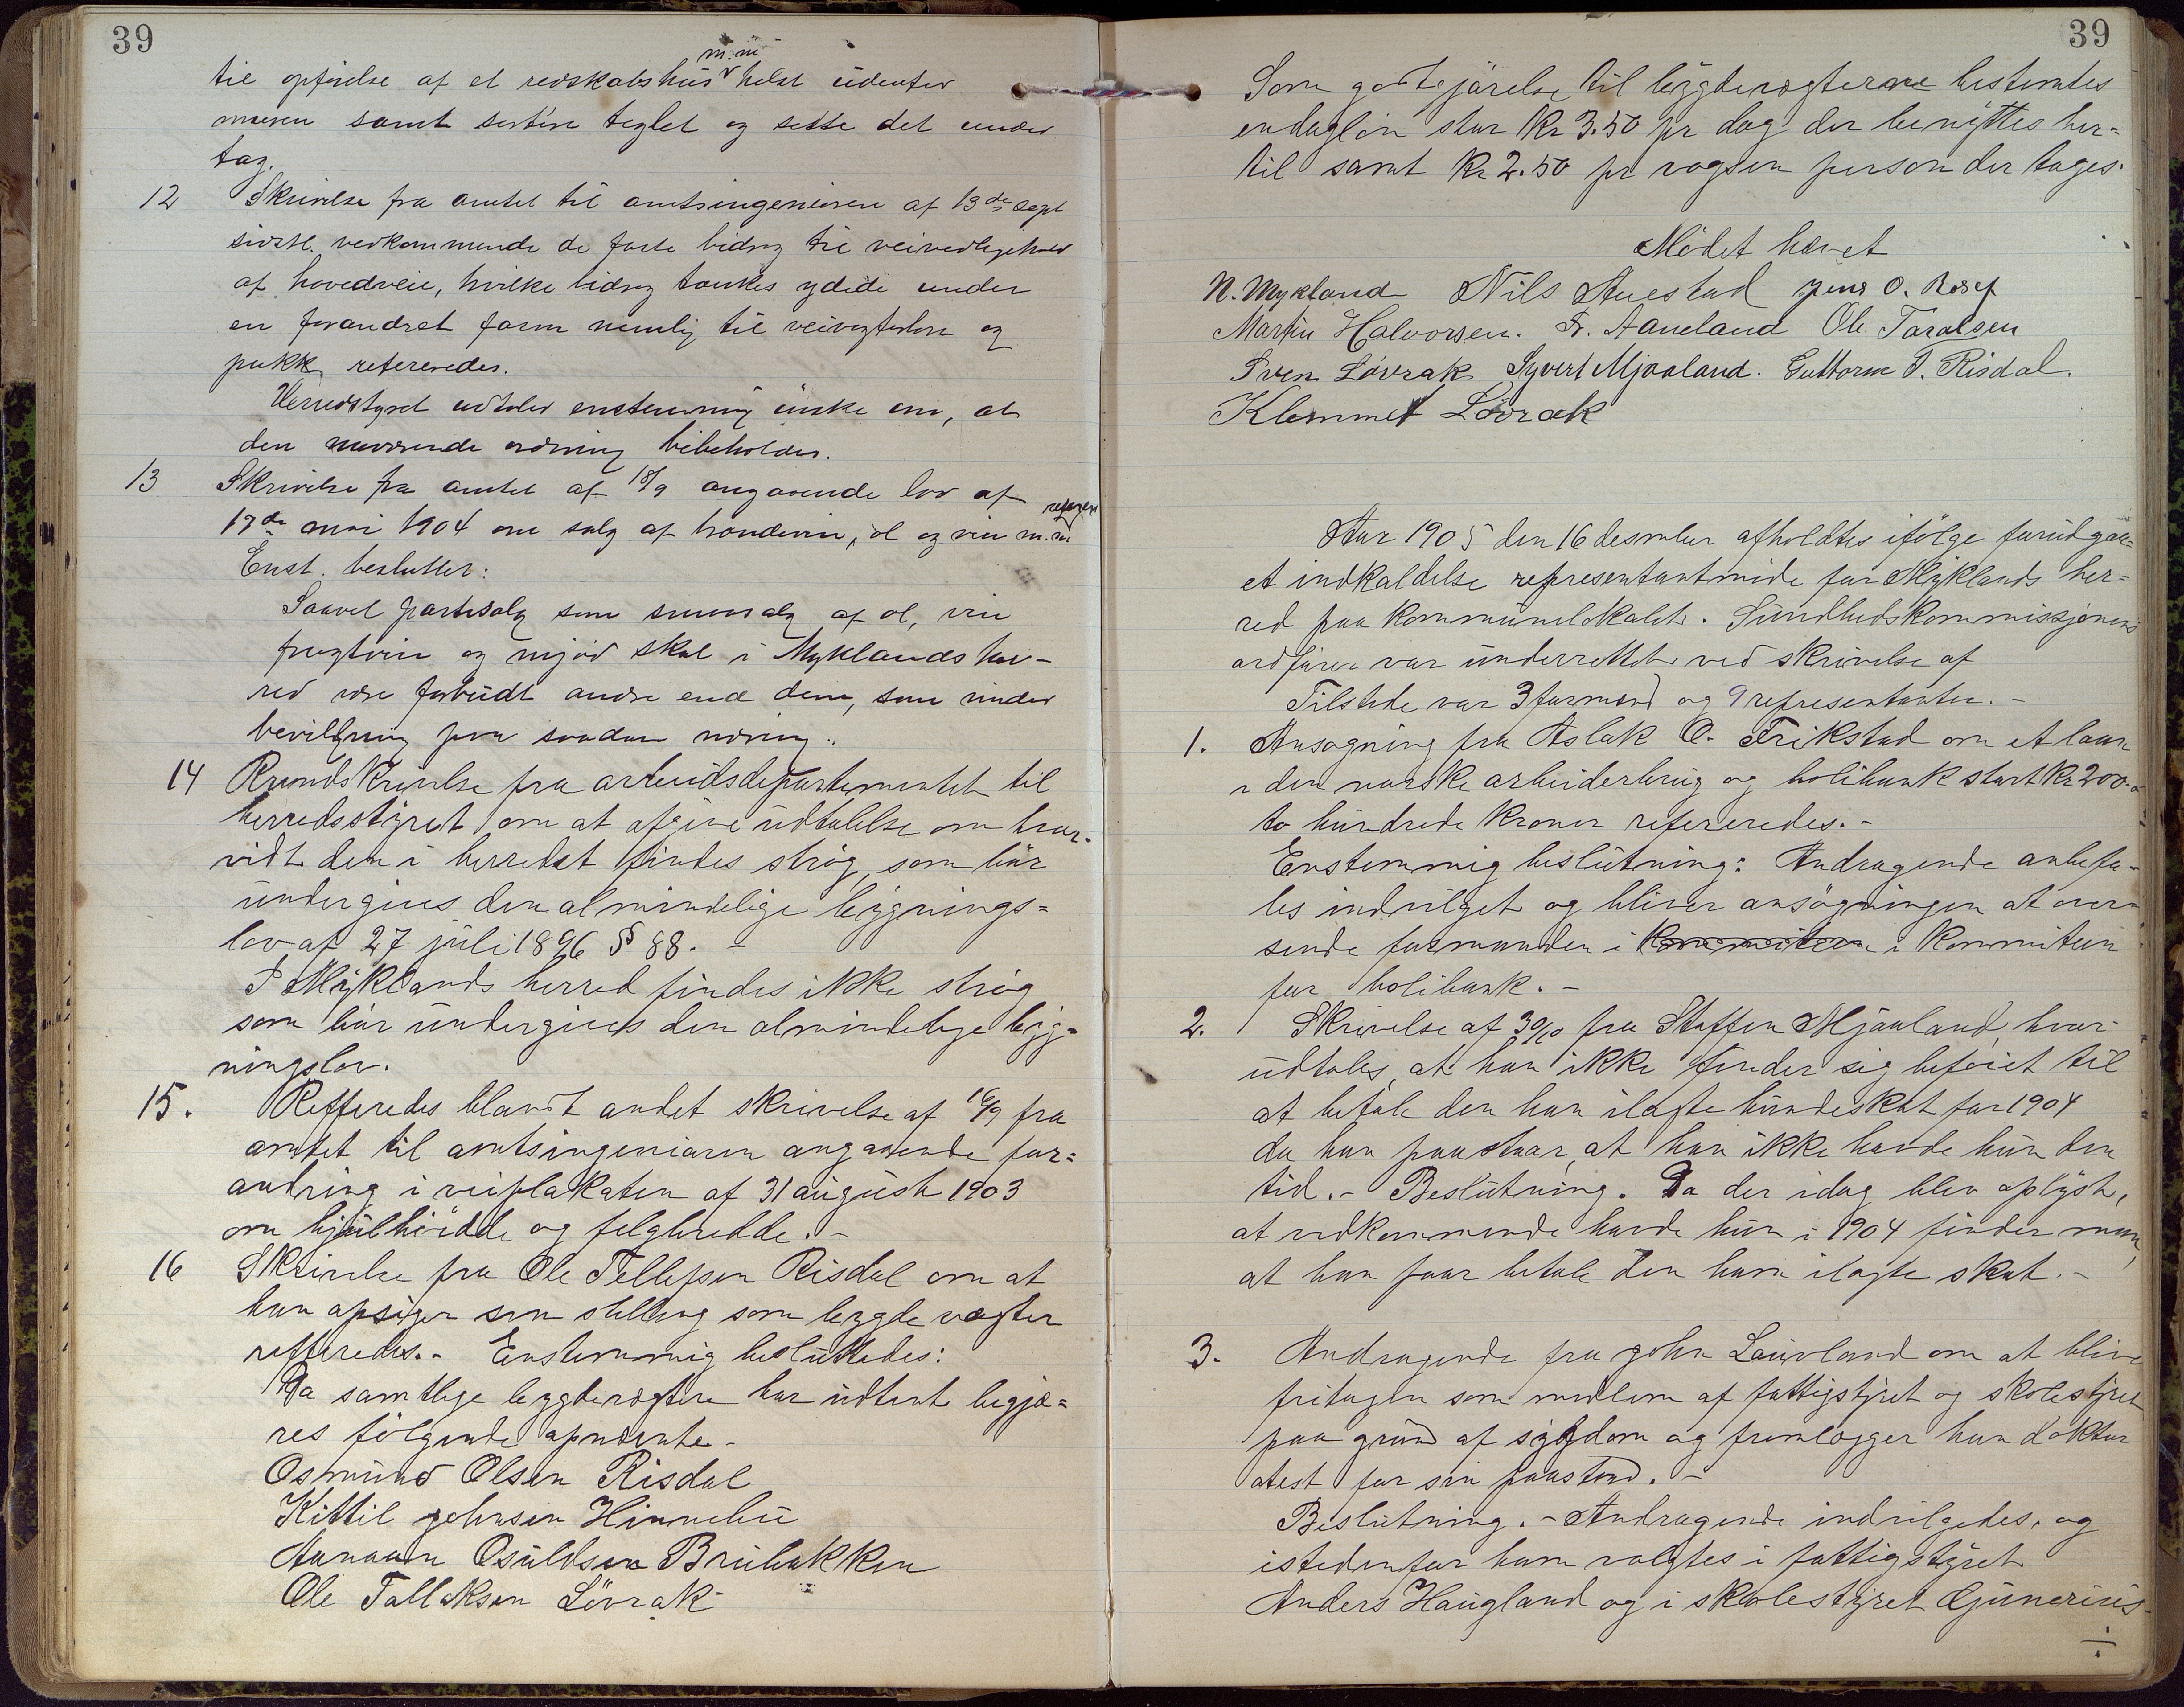 39
m.m
til opførelse af et redskabshus helst udenfor
muren samt sortere teglet og sette det under
tag.
12 Skrivelse fra amtet til amtsingeniøren af 13de sept
sidstl. vedkommende de faste bidrag til veivedligehold
af hovedveie, hvilke bidrag tænkes ydede under
en forandret form nemlig til veivogterløn og
pukk refereredes.
Herredstyret udtaler enstemmig ønske om, at
den nuværende ordning bibeholdes.
13 Skrivelse fra amtet af 18/9 angaaende lov af
17de mai 1904 om salg af brændevin, øl og vin m.m
Enst. beslutter:
Saavel partisalg som smaasalg af øl, vin
frugtvin og mjød skal i Myklands her-
red være forbudt andre end dem, som vinder
bevilgning paa saadan næring.
14 Rundskrivelse fra arbeidsdepartementet til
herredsstyret om at afgive udtalelse om hvor-
vidt den i herredet findes strøg, som bør
undergives den almindelige bygnings=
lov af 27 juli 1896 § 88. -
I Myklands herred findes ikke strøg
som bør undergives den almindelige byg=
ningslov.
15. Refferedes blandt andet skrivelse af 16/9 fra
amtet til amtsingeniøren angaaende for=
andring i veiplakaten af 31 august 1903
om hjulhøidde og felgbredde. -
16 Skrivelse fra Ole Tellefsen Risdal om at
han opsiger sin stilling som lægde vogter
refferedes. - Enstemmig besluttedes:
Da samtlige lægdevogtere har udtent begjæ=
res følgende opnævnte -
Osmund Olsen Risdal
Kittil Johnsen Hinnebu
Aanaun Osuldsen Brubakken
Ole Tallaksen Løvrak
39
Som godtgjørelse til lægdevogterne bestemtes
en daglön stor Kr 3.50 pr dag der benyttes her=
til samt Kr 2.50 pr vogsen person der tages.
Mödet hævet
N. Mykland Nils Auestad Jens O. Rosef
Martin Halvorsen. Sv. Aaneland Ole Taralsen
Sven Løvrak Syvert Mjaaland. Guttorm T. Risdal.
Klemmet Lövrak
Aar 1905 den 16 desember afholdtes ifölge forudgaa=
et indkaldelse representantmöde for Myklands her=
red paa Kommunelokalet. Sundhedskommissjonens
ordförer var underrettet ved skrivelse af
Tilstede var 3 formænd og 9 representanter. -
1. Ansøgning fra Aslak O. Frikstad om et laan
i den norske arbeiderbrug og bolibank stort Kr 200.
to hundrede Kroner refereredes. -
Enstemmig beslutning: Andragende anbefa-
les indvilget og bliver ansøgningen at over-
sende formanden i Kommiteen i Kommiteen
for bolibank. -
2. Skrivelse af 30/10 fra Staffen Mjaaland, hvor
udtales, at han ikke finder sig beføiet til
at betale den han ilagte hundeskat for 1904
da han paastaar, at han ikke havde hun den
tid. - Beslutning. Da der idag blev oplyst,
at vedkommende havde hun i 1904 finder man,
at han faar betale den ham ilagte skat. -
3. Andragende fra John Lauvland om at blive
fritagen som medlem af fattigstyret og skolestyret
paa grund af sygdom og fremlægger han doktor
atest for sin paastand. -
Beslutning. - Andragende indvilgedes, og
istedenfor ham valgtes i fattigstyret
Anders Haugland og i skolestyret Gunerius